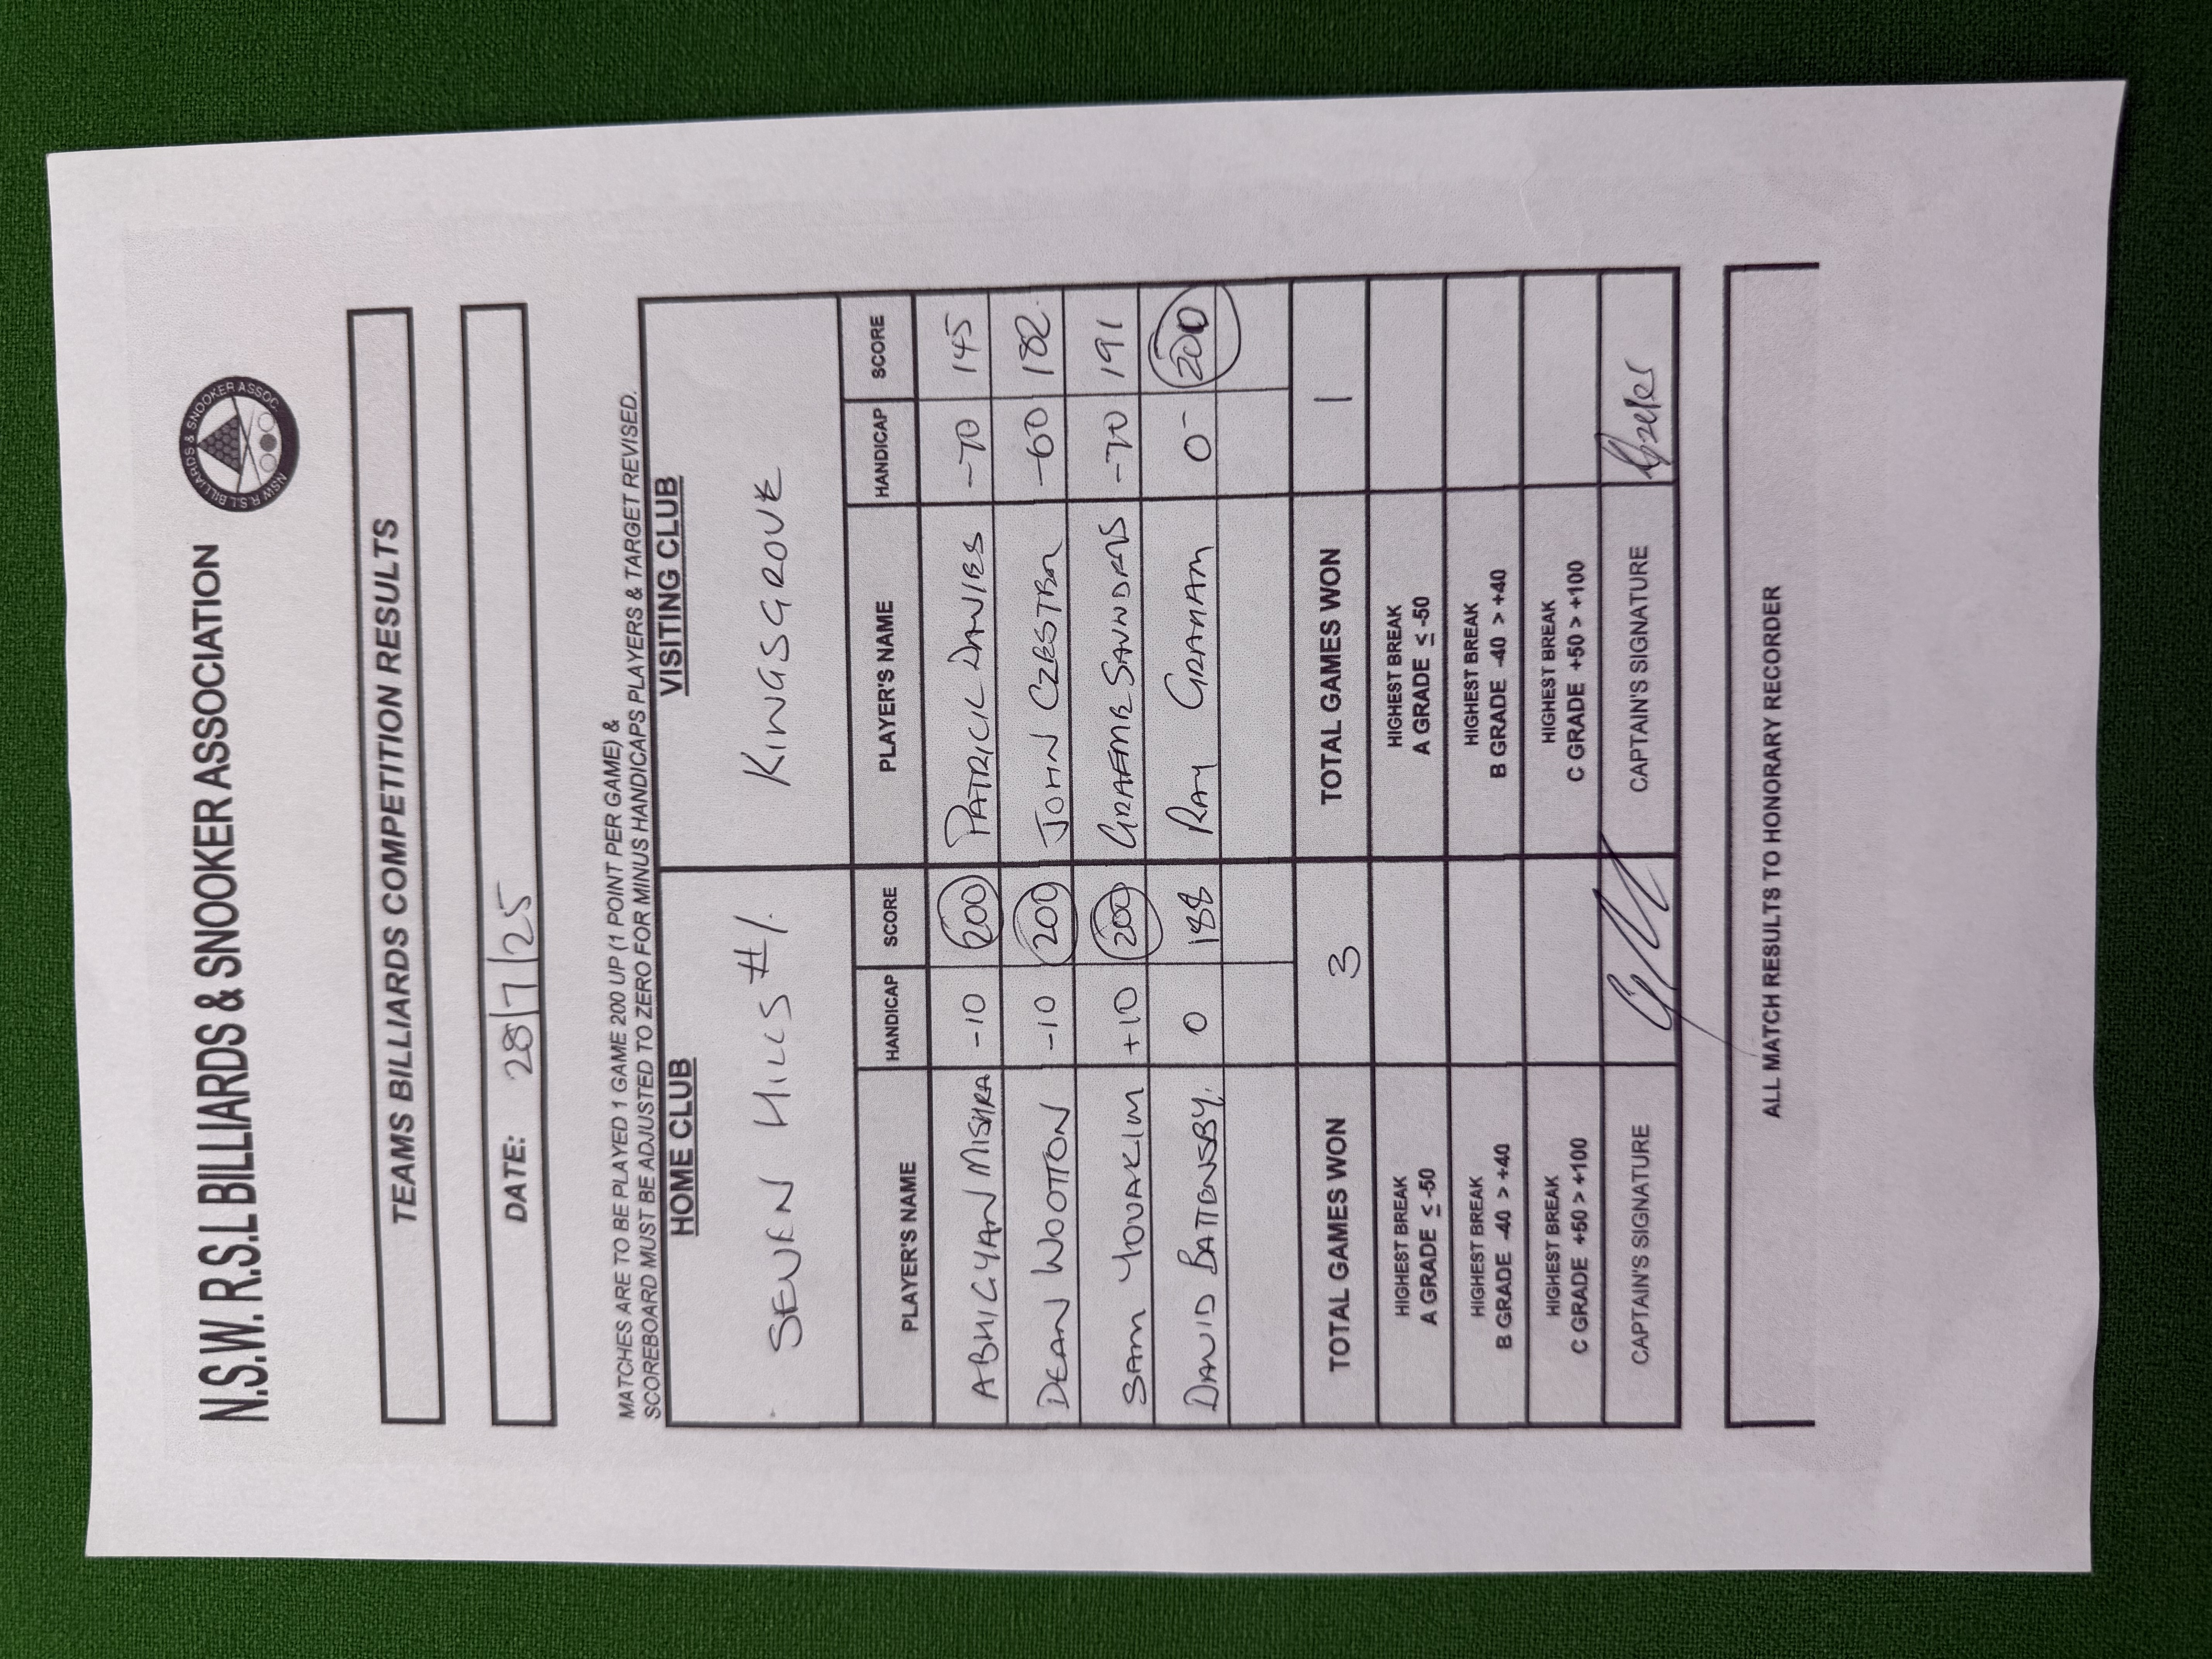 N.S.W. R.S.L BILLIARDS & SNOOKER ASSOCIATION
NSW R.S.L BILLIARDS & SNOOKER ASSOC.
TEAMS BILLIARDS COMPETITION RESULTS
DATE: 28/7/25
MATCHES ARE TO BE PLAYED 1 GAME 200 UP (1 POINT PER GAME) &
SCOREBOARD MUST BE ADJUSTED TO ZERO FOR MINUS HANDICAPS PLAYERS & TARGET REVISED.
HOME CLUB VISITING CLUB
SEVEN HILLS #1. KINGSGROVE
PLAYER'S NAME HANDICAP SCORE PLAYER'S NAME HANDICAP SCORE
ABHIGYAN MISHRA -10 200 PATRICK DAVIES -70 145
DEAN WOOTTON -10 200 JOHN -60 182
SAM YOUAKIM +10 200 GRAEME SAUNDERS -70 191
DAVID BATTENSBY. 0 188 RAY GRAHAM 0 200
TOTAL GAMES WON 3 TOTAL GAMES WON 1
HIGHEST BREAK HIGHEST BREAK
A GRADE ≤ -50 A GRADE ≤ -50
HIGHEST BREAK HIGHEST BREAK
B GRADE -40 > +40 B GRADE -40 > +40
HIGHEST BREAK HIGHEST BREAK
C GRADE +50 > +100 C GRADE +50 > +100
CAPTAIN'S SIGNATURE CAPTAIN'S SIGNATURE
ALL MATCH RESULTS TO HONORARY RECORDER